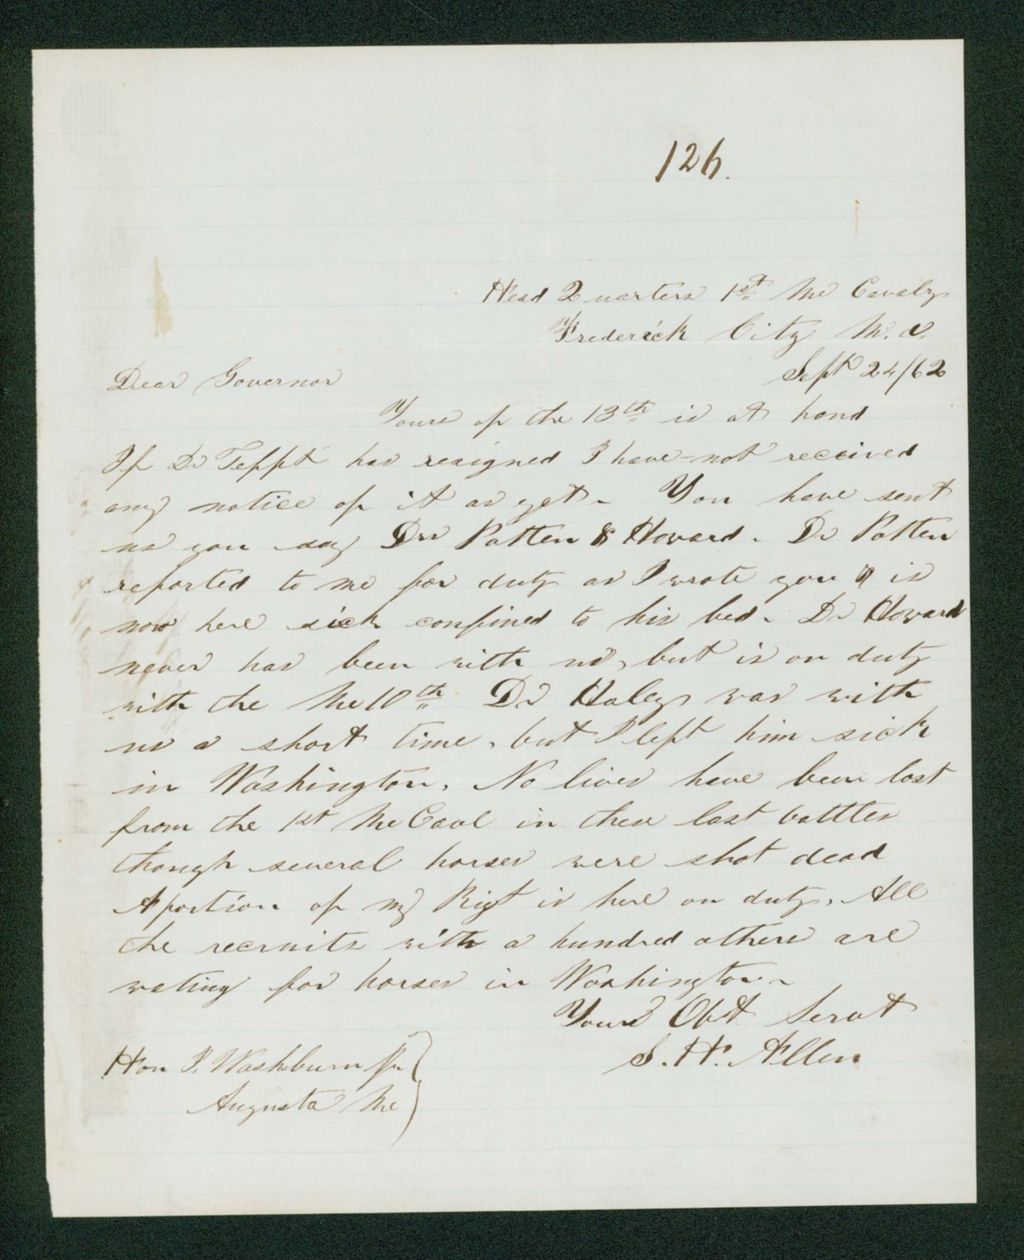 126.
Head Quarters 1st Me Cavaly
Frederick City M.d.
Sept 24/62
Dear Governor
Yours of the 13th is at hand
If Dr Tefft has resigned I have not received
any notice of it as yet - You have sent
us you say Drs Patten & Howard. Dr Patten
reported to me for duty as I wrote you & is
now here sick confined to his bed. Dr Howard
never has been with us, but is on duty
with the Me 10th Dr Haley was with
us a short time, but I left him sick
in Washington. No lives have been lost
from the 1st Me Cavl in these last battles
though several horses were shot dead
A portion of my Rigt is here on duty. All
the recruits with a hundred others are
wating for horses in Washington
Yours Obt Servt
S. H. Allen
Hon I. Washburn Jr
Augusta Me